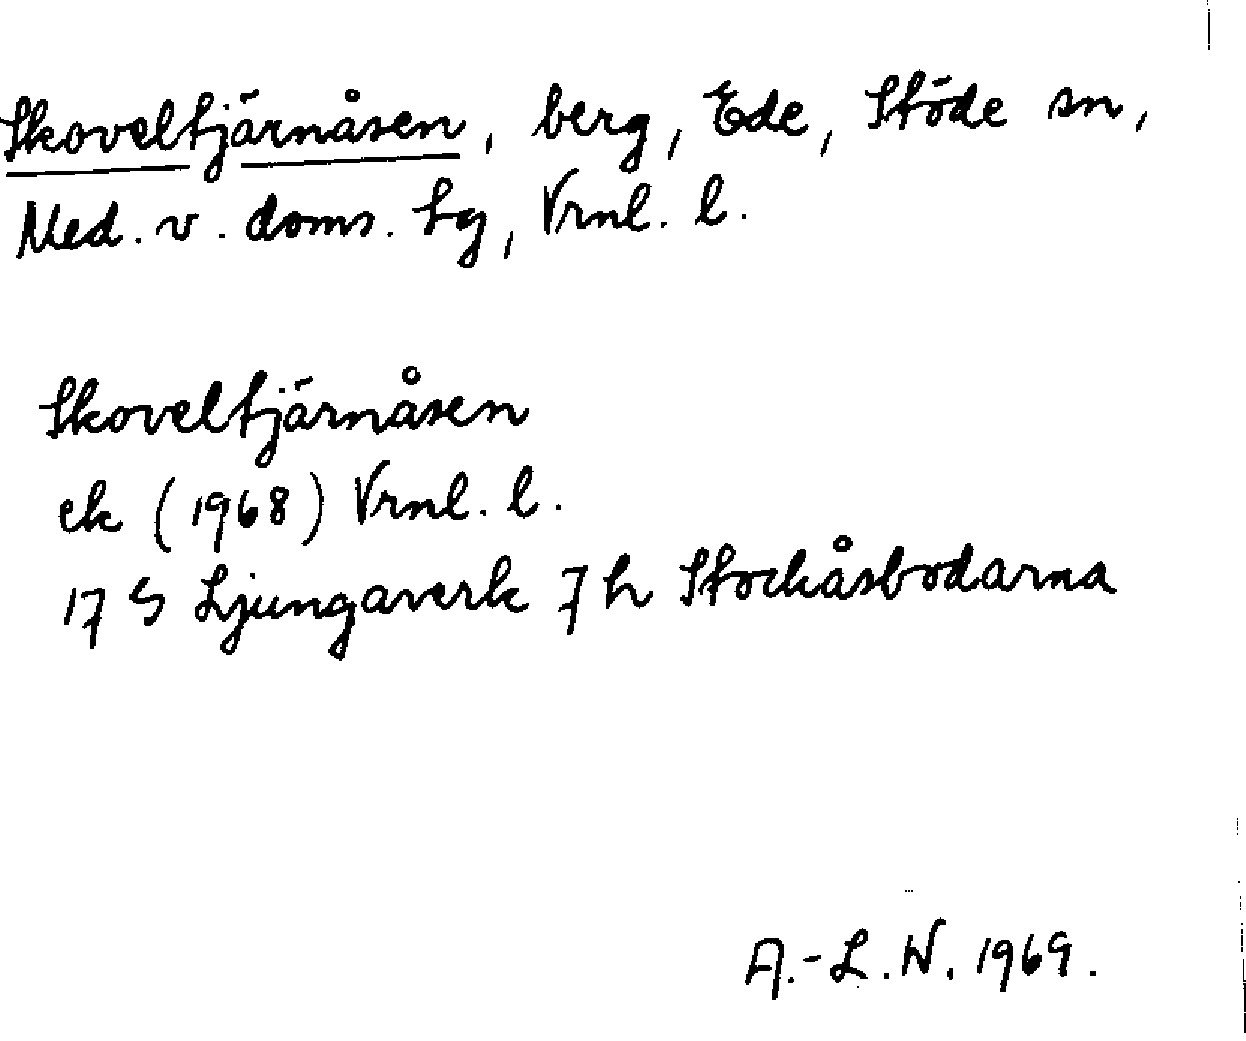 Skoveltjärnåsen, berg, Ede, Stöde sn,
Med. v. doms. tg, Vrnl. l.
Skoveltjärnåsen
ek (1968) Vrnl. l.
17 G Ljungaverk 7 h Stockåsbodarna
A.-L.N. 1969.